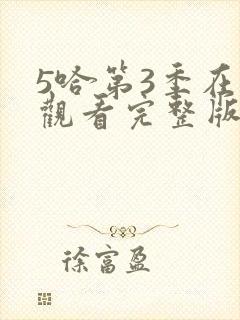 5哈第3季在
觀看完整版
徐富盈